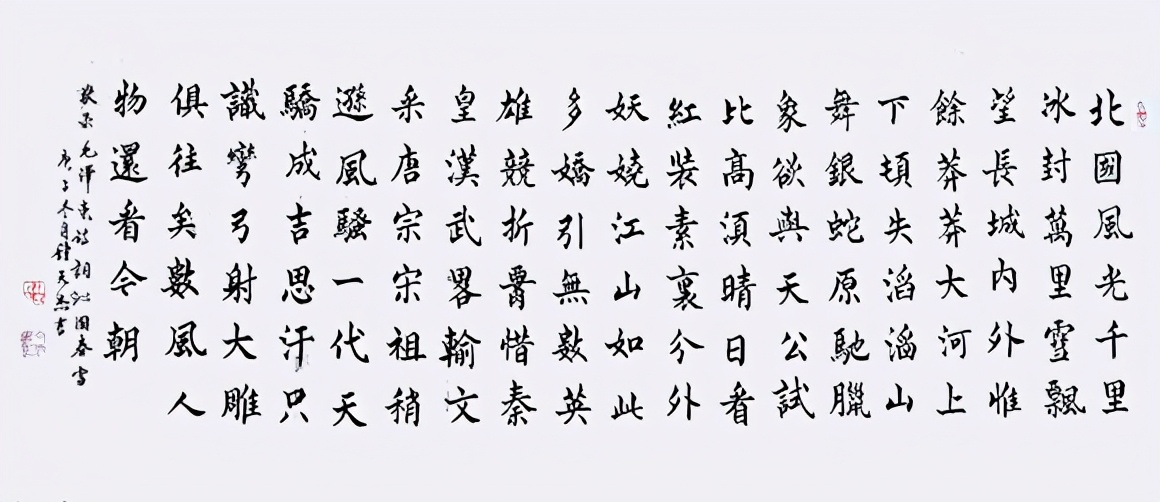 北國風光千里
冰封萬里雪飄
望長城内外惟
餘莽莽大河上
下頓失滔滔山
舞銀蛇原馳臘
象欲與天公試
比高須晴日看
紅裝素裹分外
妖嬈江山如此
多嬌引無數英
雄競折腰惜秦
皇漢武畧輸文
采唐宗宋祖稍
遜風騷一代天
驕成吉思汗只
識彎弓射大雕
俱往矣數風人
物還看今朝
敬录毛泽東诗詞沁園春雪
庚子冬月